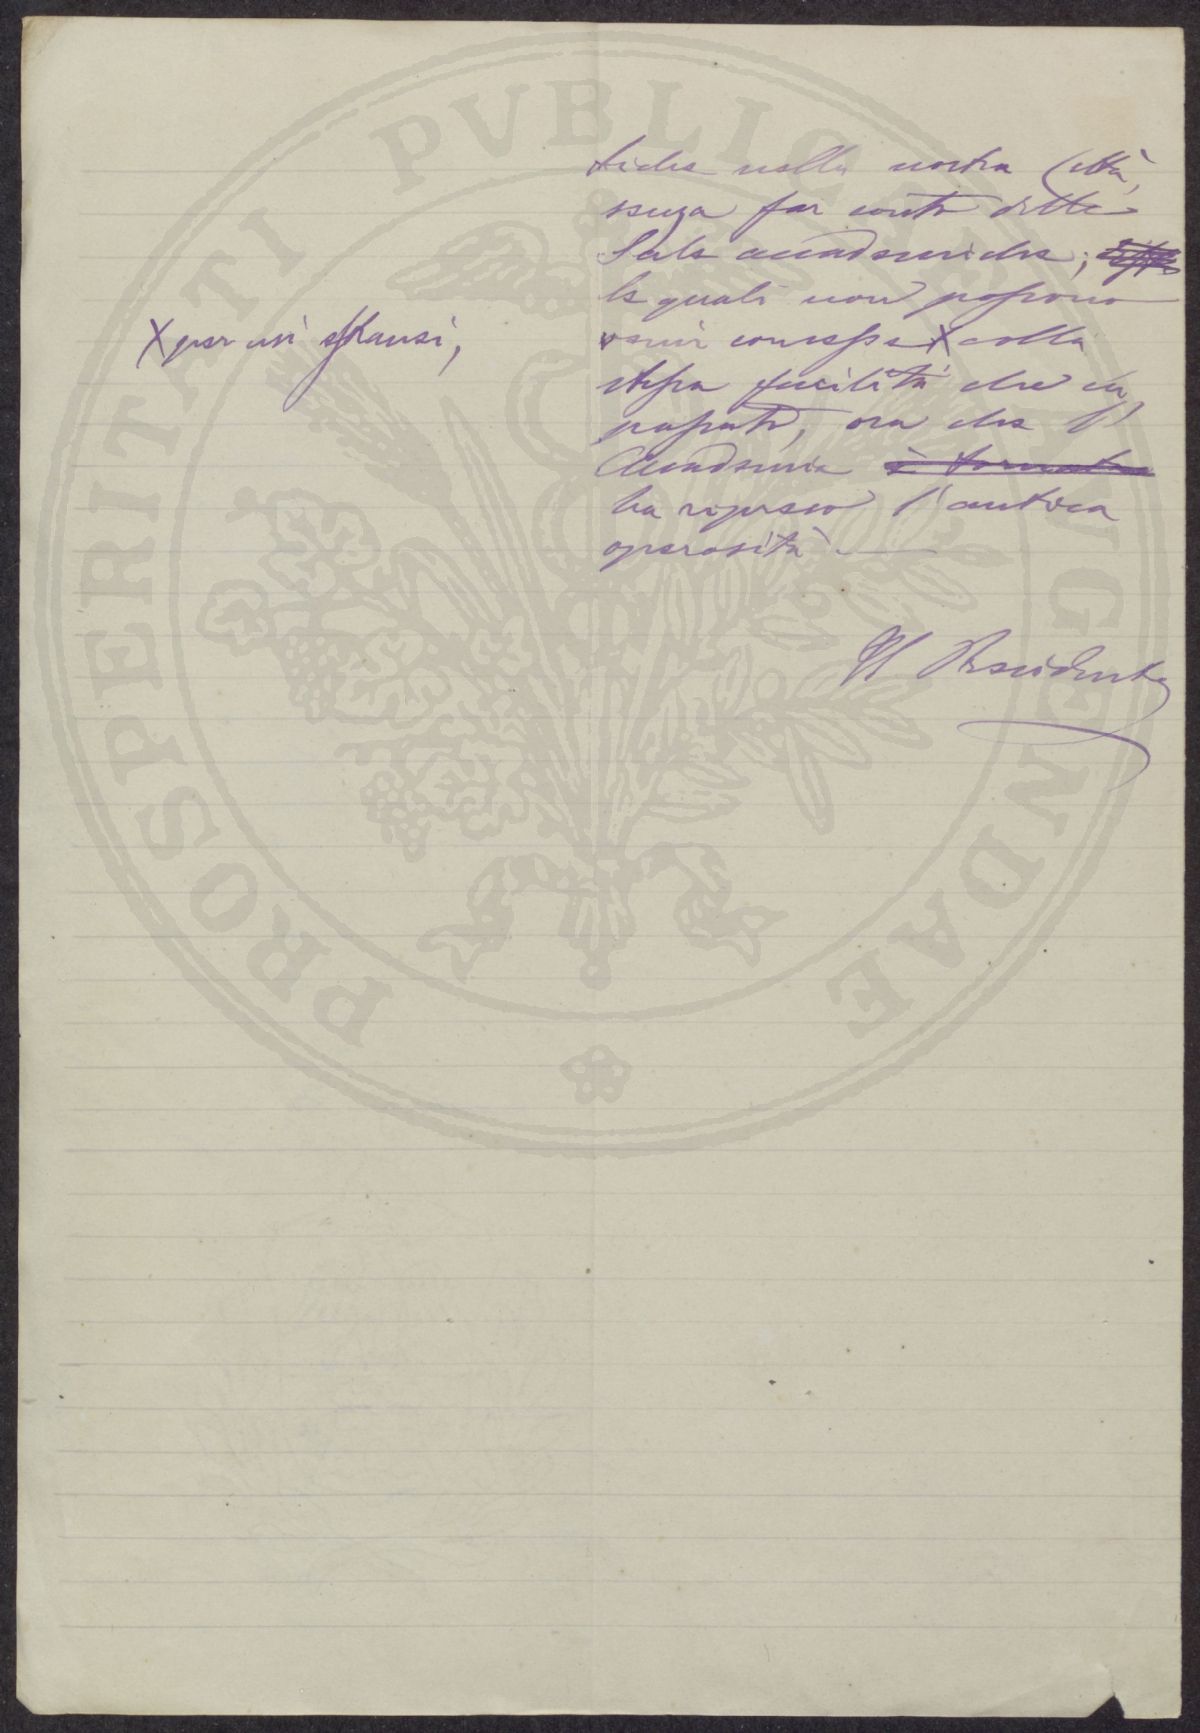 tiche nella nostra Città,
senza far conto delle
Sale accademiche;
le quali non possono
venir concesse X colla
stessa facilità che in
passato, ora che l'
Accademia è tornata
ha ripreso l'antica
operosità.
Il Presidente
X per usi estranei,
PROSPERITATI PVBLICAE AVGENDAE